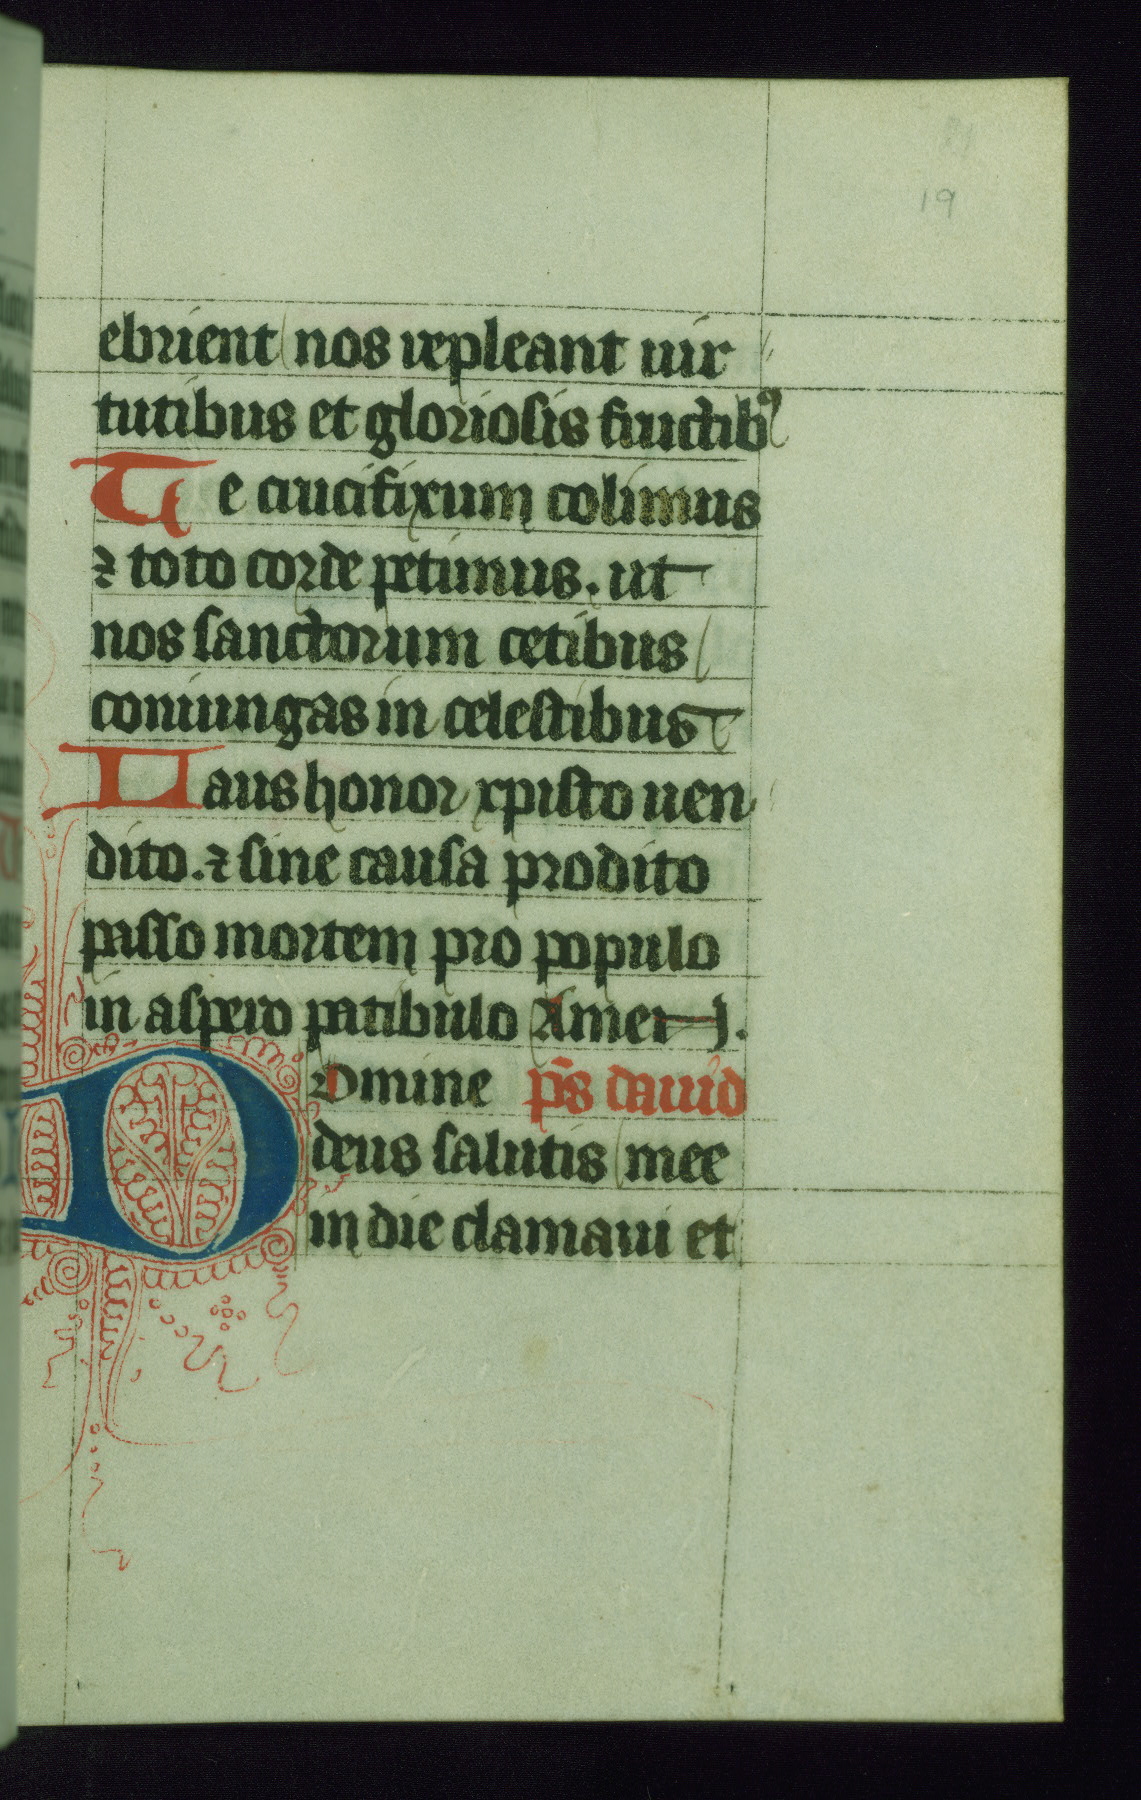 19
ebrient nos repleant uir
tutibus et gloriosis fructibꝰ
Te crucifixum colimus
⁊ toto corde petimus. ut
nos sanctorum cetibus
coniungas in celestibus
Laus honor xpisto uen
dito. ⁊ sine causa prodito
passo mortem pro populo
in aspero patibulo Amen.
Domine p̄s dauid
deus salutis mee
in die clamaui et